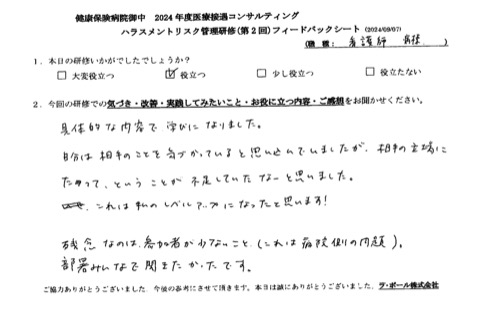 健康保険病院御中　2024年度医療接遇コンサルティング
ハラスメントリスク管理研修(第2回)フィードバックシート (2024/09/07)
(職種: 看護師
1. 本日の研修いかがでしたでしょうか？
□ 大変役立つ　☑ 役立つ　□ 少し役立つ　□ 役立たない
2. 今回の研修での気づき・改善・実践してみたいこと・お役に立つ内容・ご感想をお聞かせください。
具体的な内容で学びになりました。
自分は相手のことを気づかっていると思い込んでいましたが、相手の立場に
たって、ということが不足していたなーと思いました。
これは私のレベルアップになったと思います!
残念なのは、参加者が少ないこと、(これは病院側の問題)。
部署みんなで聞きたかったです。
ご協力ありがとうございました。今後の参考にさせて頂きます。本日は誠にありがとうございました。ラ・ポール株式会社